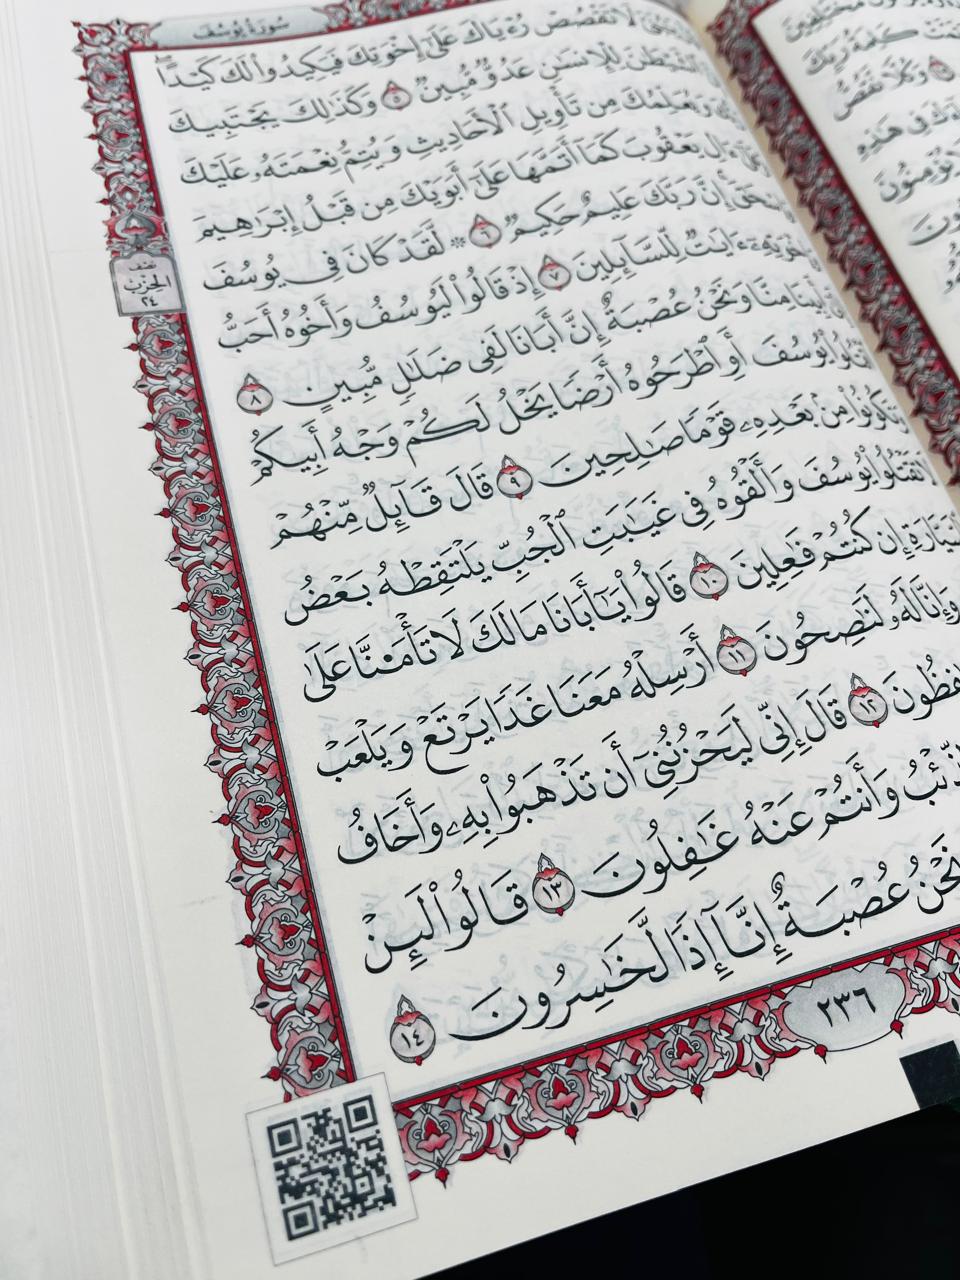 سُورَةُ يُوسُفَ
لَا تَقْصُصْ رُءْيَاكَ عَلَىٰٓ إِخْوَتِكَ فَيَكِيدُوا۟ لَكَ كَيْدًا ۖ
ٱلشَّيْطَٰنَ لِلْإِنسَٰنِ عَدُوٌّ مُّبِينٌ ٥ وَكَذَٰلِكَ يَجْتَبِيكَ
وَيُعَلِّمُكَ مِن تَأْوِيلِ ٱلْأَحَادِيثِ وَيُتِمُّ نِعْمَتَهُۥ عَلَيْكَ
ءَالِ يَعْقُوبَ كَمَآ أَتَمَّهَا عَلَىٰٓ أَبَوَيْكَ مِن قَبْلُ إِبْرَٰهِيمَ
إِنَّ رَبَّكَ عَلِيمٌ حَكِيمٌ ٦ ۞ لَّقَدْ كَانَ فِى يُوسُفَ
ءَايَٰتٌ لِّلسَّآئِلِينَ ٧ إِذْ قَالُوا۟ لَيُوسُفُ وَأَخُوهُ أَحَبُّ
أَبِينَا مِنَّا وَنَحْنُ عُصْبَةٌ إِنَّ أَبَانَا لَفِى ضَلَٰلٍ مُّبِينٍ ٨
يُوسُفَ أَوِ ٱطْرَحُوهُ أَرْضًا يَخْلُ لَكُمْ وَجْهُ أَبِيكُمْ
وَتَكُونُوا۟ مِنۢ بَعْدِهِۦ قَوْمًا صَٰلِحِينَ ٩ قَالَ قَآئِلٌ مِّنْهُمْ
لَا تَقْتُلُوا۟ يُوسُفَ وَأَلْقُوهُ فِى غَيَٰبَتِ ٱلْجُبِّ يَلْتَقِطْهُ بَعْضُ
ٱلسَّيَّارَةِ إِن كُنتُمْ فَٰعِلِينَ ١٠ قَالُوا۟ يَٰٓأَبَانَا مَا لَكَ لَا تَأْمَ۫نَّا عَلَىٰ
وَإِنَّا لَهُۥ لَنَٰصِحُونَ ١١ أَرْسِلْهُ مَعَنَا غَدًا يَرْتَعْ وَيَلْعَبْ
١٢ قَالَ إِنِّى لَيَحْزُنُنِىٓ أَن تَذْهَبُوا۟ بِهِۦ وَأَخَافُ
ٱلذِّئْبُ وَأَنتُمْ عَنْهُ غَٰفِلُونَ ١٣ قَالُوا۟ لَئِنْ
وَنَحْنُ عُصْبَةٌ إِنَّآ إِذًا لَّخَٰسِرُونَ ١٤
نصف
الحزب
٢٤
٢٣٦
كَلِمَةُ رَبِّكَ
وَكُلًّا نَّقُصُّ
فِى هَٰذِهِ
يُؤْمِنُونَ